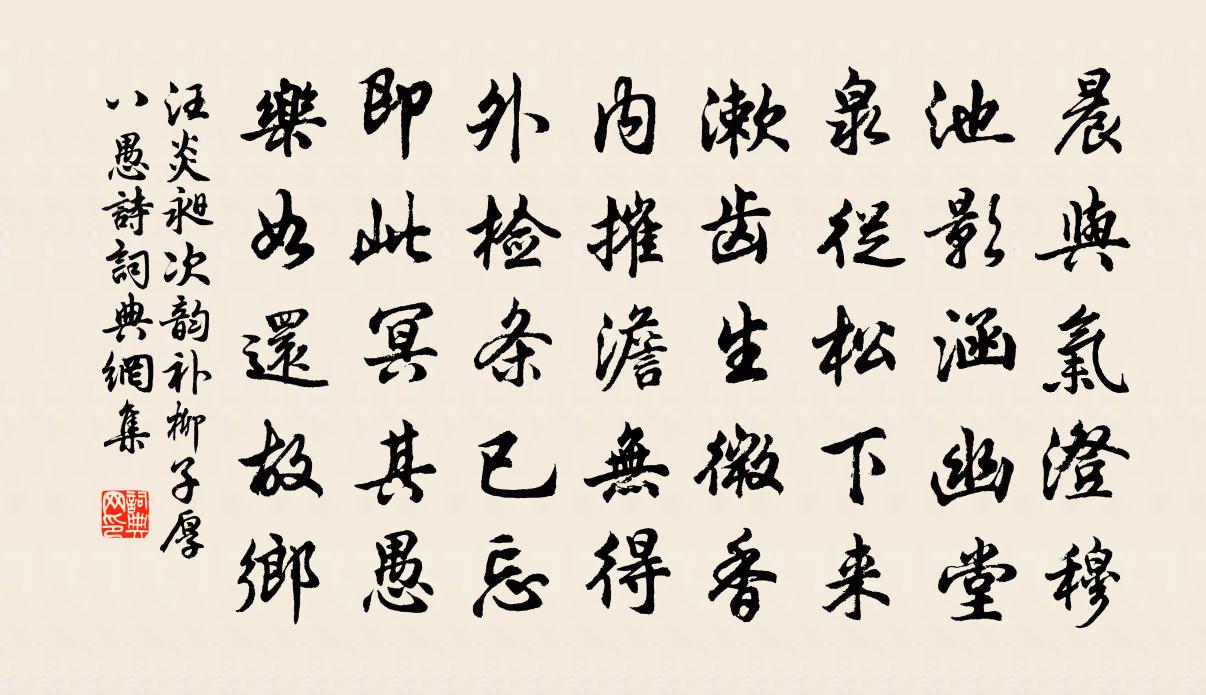 晨興氣澄穆
池影涵幽堂
泉從松下来
漱齿生微香
内摧澹無得
外检条已忘
即此冥其愚
樂如還故鄉
汪炎昶次韵补柳子厚
八愚詩詞典網集
詞典
网印